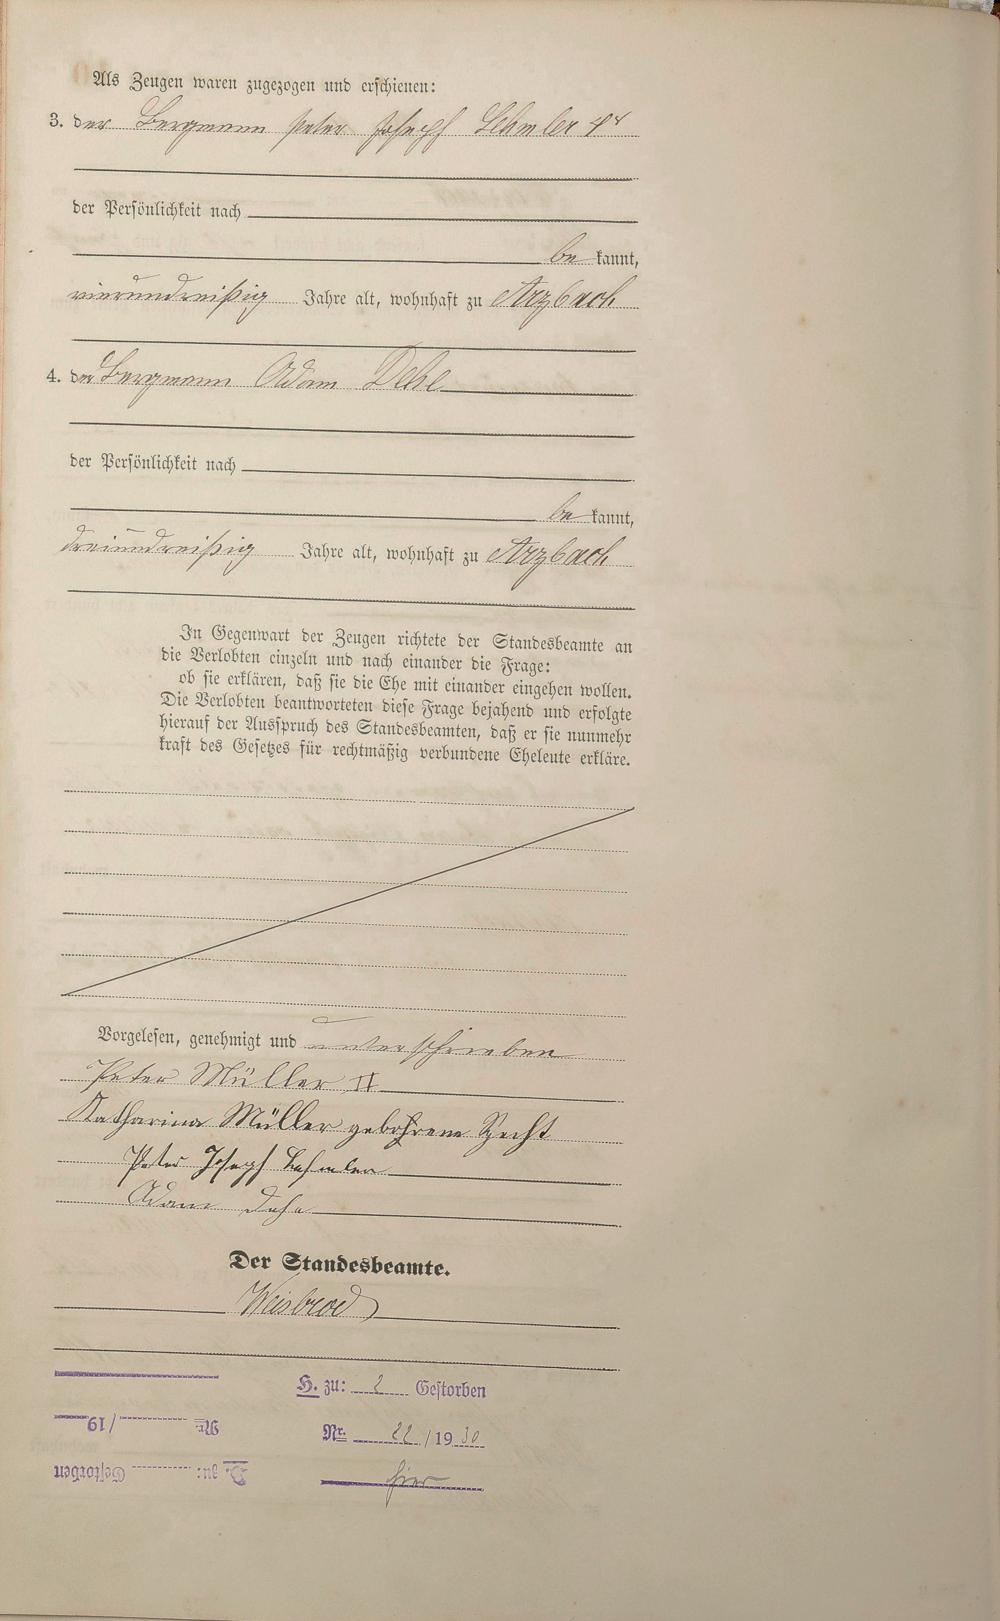 Als Zeugen waren zugezogen und erschienen:
3. der Bergmann Peter Joseph Lehmler 4r
der Persönlichkeit nach
be kannt,
vierunddreißig Jahre alt, wohnhaft zu Arzbach
4. der Bergmann Adam Dehe
der Persönlichkeit nach
be kannt,
dreiunddreißig Jahre alt, wohnhaft zu Arzbach
In Gegenwart der Zeugen richtete der Standesbeamte an
die Verlobten einzeln und nach einander die Frage:
ob sie erklären, daß sie die Ehe mit einander eingehen wollen.
Die Verlobten beantworteten diese Frage bejahend und erfolgte
hierauf der Ausspruch des Standesbeamten, daß er sie nunmehr
kraft des Gesetzes für rechtmäßig verbundene Eheleute erkläre.
Vorgelesen, genehmigt und unterschrieben
Peter Müller II
Katharina Müller gebohrene Specht
Peter Joseph Lehmler
Adam Dehe
Der Standesbeamte.
Weisbrod
H. zu: 2 Gestorben
Nr. 22 / 19 30
hier
D. zu: Gestorben
Nr. / 19